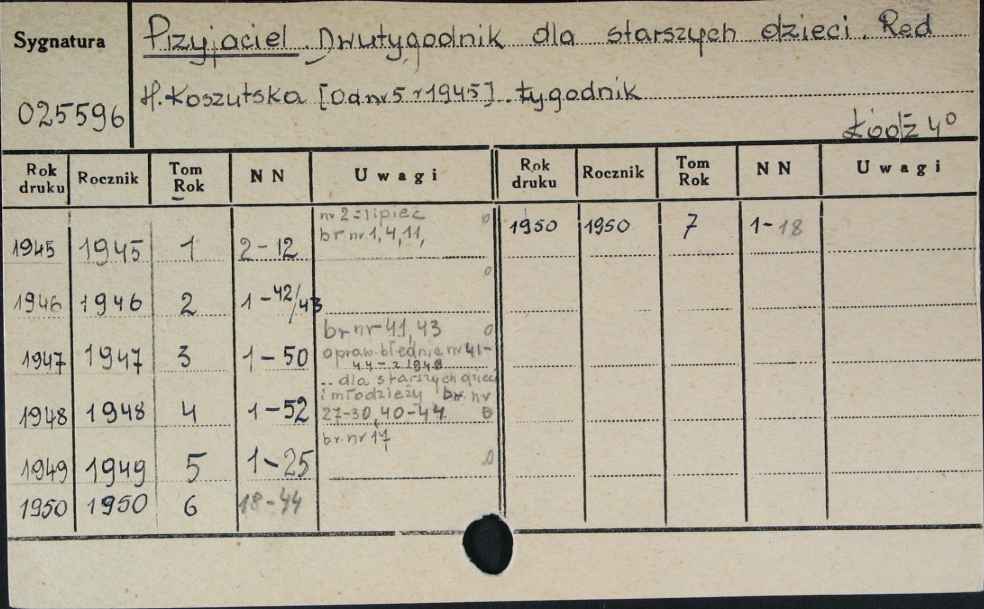 Sygnatura
Przyjaciel. Dwutygodnik dla starszych dzieci. Red
H. Koszutska [Od nr 5 r 1945]. tygodnik
025596
Łódź 4°
Rok druku Rocznik Tom Rok NN Uwagi Rok druku Rocznik Tom Rok NN Uwagi
nr 2 = lipiec
br nr 1, 4, 11,
1945 1945 1 2-12
1950 1950 7 1-18
1946 1946 2 1-42/43
br nr 41, 43
1947 1947 3 1-50
opraw. błędnie nr 41-
44 - z 1948
.. dla starszych dzieci
i młodzieży br. nr
1948 1948 4 1-52 27-30, 40-44
br. nr 17
1949 1949 5 1-25
1950 1950 6 18-44